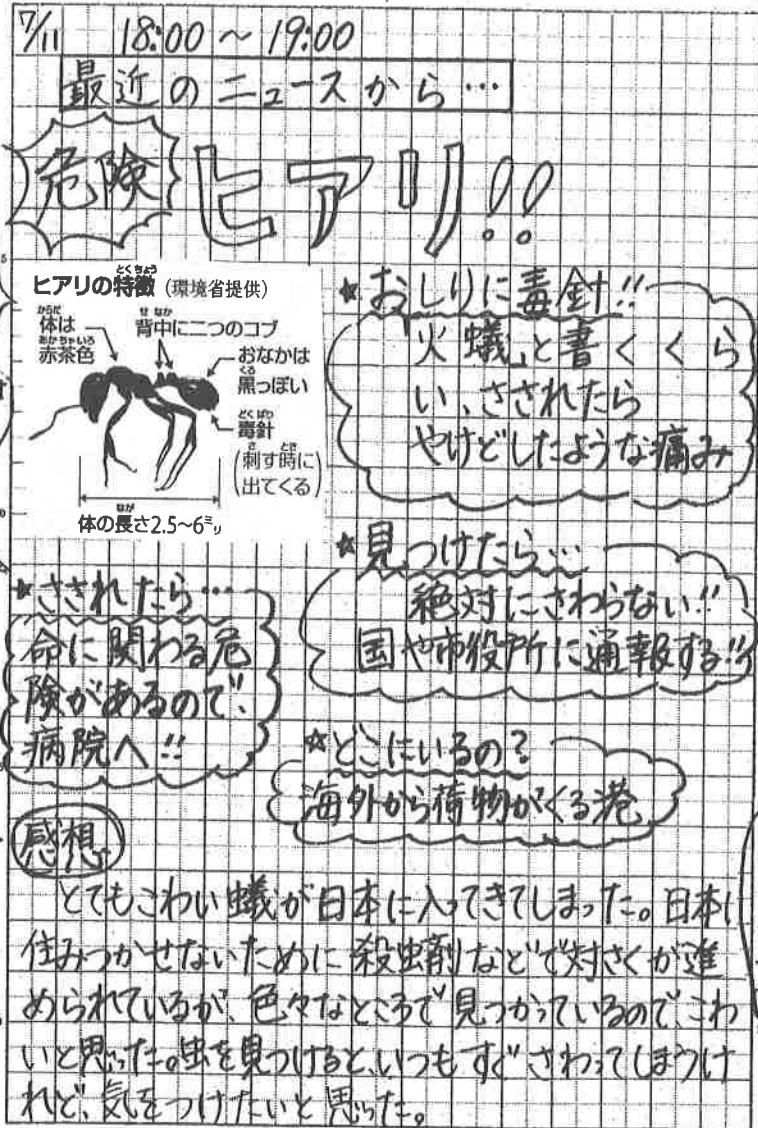 7/11 18:00～19:00
最近のニュースから…
危険 ヒアリ!!
ヒアリの特徴（環境省提供）
とくちょう
からだ
体は
あかちゃいろ
赤茶色
せなか
背中に二つのコブ
おなかは
くろ
黒っぽい
どくばり
毒針
さ とき
(刺す時に
出てくる)
なが
体の長さ2.5～6ミリ
★おしりに毒針!!
「火蟻」と書くくら
い、さされたら
やけどしたような痛み
★見つけたら…
絶対にさわらない!!
国や市役所に通報する!!
★さされたら…
命に関わる危
険があるので、
病院へ!!
☆どこにいるの？
海外から荷物がくる港
感想
とてもこわい蟻が日本に入ってきてしまった。日本に
住みつかせないために殺虫剤などで対さくが進
められているが、色々なところで見つかっているので、こわ
いと思った。虫を見つけると、いつもすぐさわってしまうけ
れど、気をつけたいと思った。